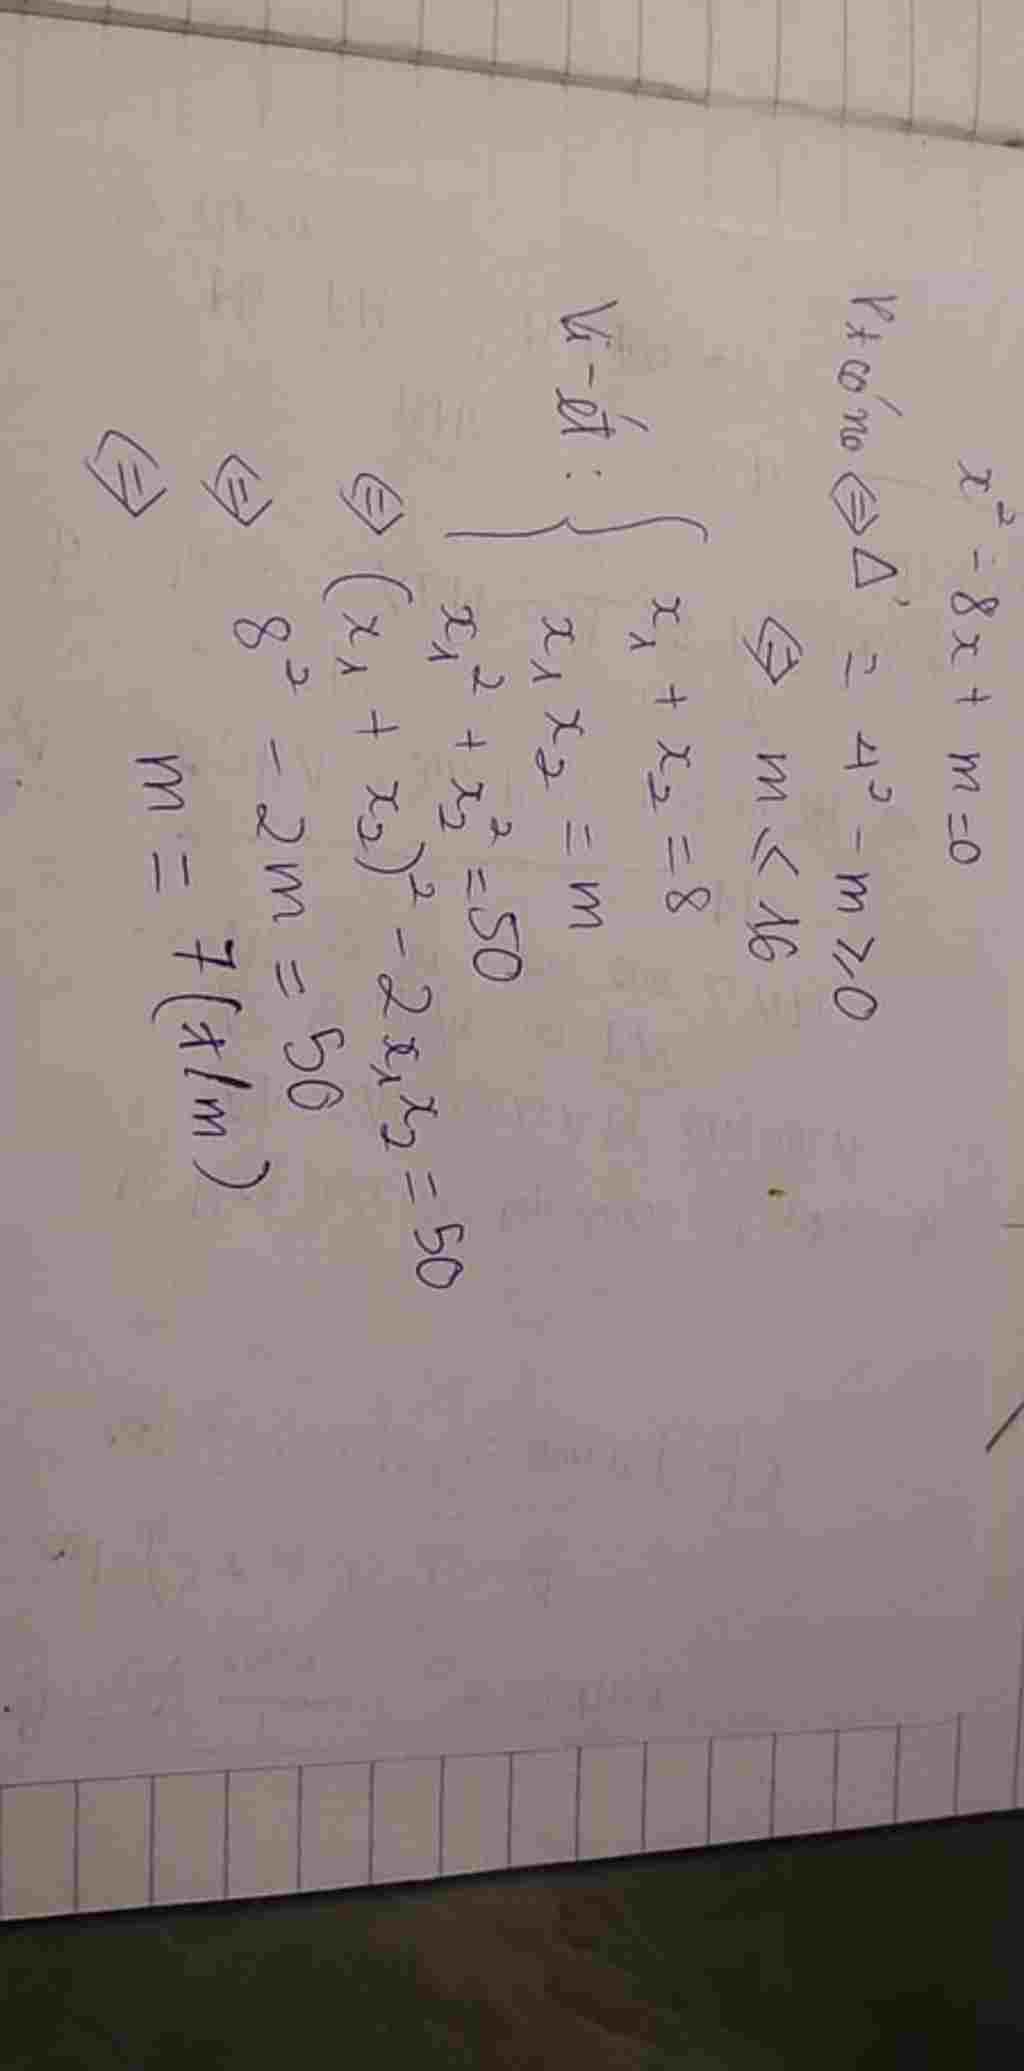 x² - 8x + m = 0
Pt có no ⇔ Δ' = 4² - m ≥ 0
⇔ m ≤ 16
Vi-ét : { x₁ + x₂ = 8
x₁x₂ = m
x₁² + x₂² = 50
⇔ (x₁ + x₂)² - 2x₁x₂ = 50
⇔ 8² - 2m = 50
⇔ m = 7 (t/m)